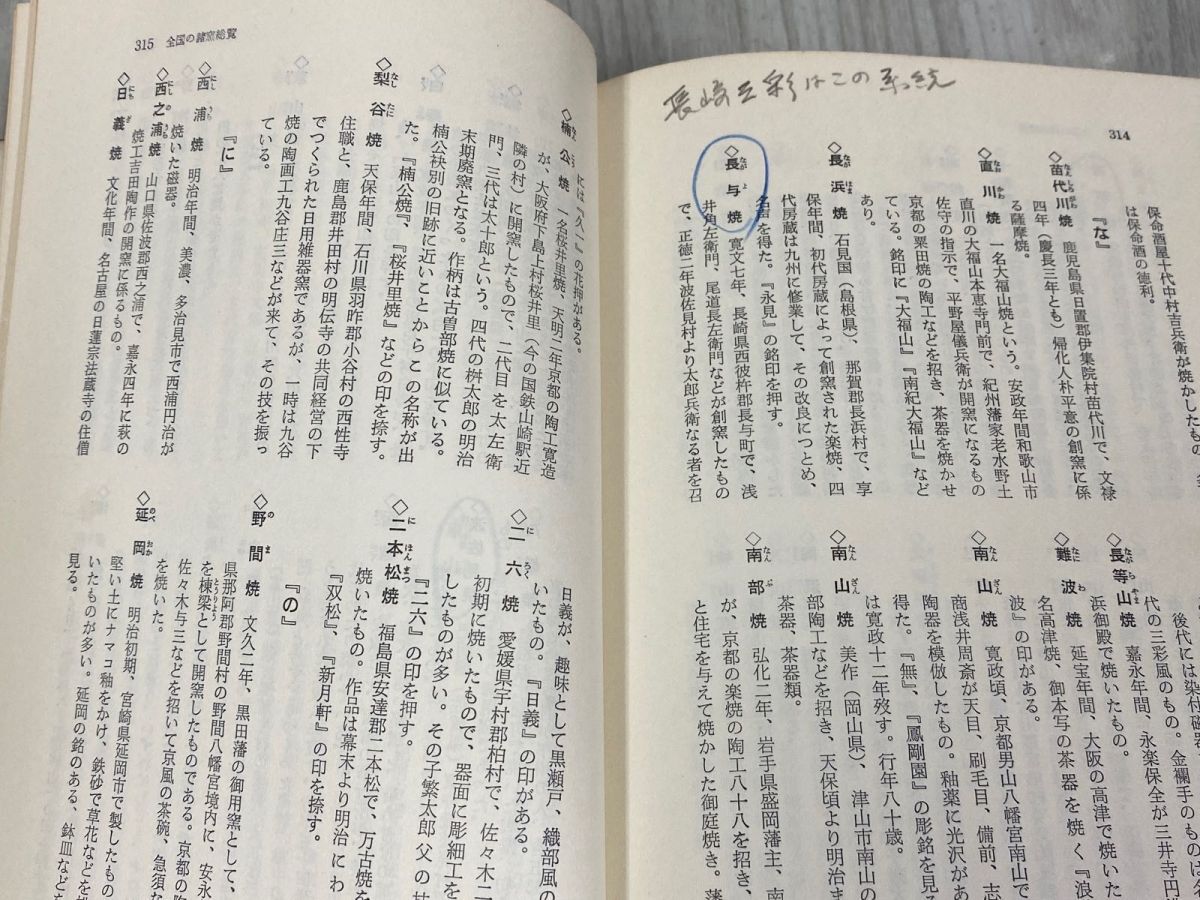 314
長崎三彩はこの系統
保命酒屋十代中村吉兵衛が焼かしたもの
は保命酒の徳利。
『な』
◇苗代川焼 鹿児島県日置郡伊集院村苗代川で、文禄
四年（慶長三年とも）帰化人朴平意の創窯に係
る薩摩焼。
◇直川焼 一名大福山焼という。安政年間和歌山市
直川の大福山本恵寺門前で、紀州藩家老水野土
佐守の指示で、平野屋儀兵衛が開窯になるもの
京都の粟田焼の陶工などを招き、茶器を焼かせ
ている。銘印に『大福山』『南紀大福山』など
あり。
◇長浜焼 石見国（島根県）、那賀郡長浜村で、享
保年間、初代房蔵によって創窯された楽焼、四
代房蔵は九州に修業して、その改良につとめ、
名声を得た。『永見』の銘印を押す。
◇長与焼 寛文七年、長崎県西彼杵郡長与町で、浅
井角左衛門、尾道長左衛門などが創窯したもの
で、正徳二年波佐見村より太郎兵衛なる者を召
後代には染付磁器
代の三彩風のもの。金襴手のものは名
◇長等山焼 嘉永年間、永楽保全が三井寺円
浜御殿で焼いたもの。
◇難波焼 延宝年間、大阪の高津で焼いた
名高津焼、御本写の茶器を焼く『浪
波』の印がある。
◇南山焼 寛政頃、京都男山八幡宮南山で
商浅井周斎が天目、刷毛目、備前、志
陶器を模倣したもの。釉薬に光沢があ
得た。『無』、『鳳剛園』の彫銘を見る
は寛政十二年歿す。行年八十歳。
◇南山焼 美作（岡山県）、津山市南山の
部陶工などを招き、天保頃より明治ま
茶器、茶器類。
◇南部焼 弘化二年、岩手県盛岡藩主、南
が、京都の楽焼の陶工八十八を招き、
と住宅を与えて焼かした御庭焼き。藩
315 全国の諸窯総覧
には『久〉』の花押がある。
◇楠公焼 一名桜井里焼、天明二年京都の陶工寛造
が、大阪府下島上村桜井里（今の国鉄山崎駅近
隣の村）に開窯したもので、二代目を太左衛
門、三代は太十郎という。四代の桝太郎の明治
末期廃窯となる。作柄は古曽部焼に似ている。
楠公袂別の旧跡に近いことからこの名称が出
た。『楠公焼』、『桜井里焼』などの印を捺す。
◇梨谷焼 天保年間、石川県羽咋郡小谷村の西性寺
住職と、鹿島郡井田村の明伝寺の共同経営の下
でつくられた日用雑器窯であるが、一時は九谷
焼の陶画工九谷庄三などが来て、その技を振っ
ている。
『に』
◇西浦焼 明治年間、美濃、多治見市で西浦円治が
焼いた磁器。
◇西之浦焼 山口県佐波郡西之浦で、嘉永四年に萩の
焼工吉田陶作の開窯に係るもの。
◇日義焼 文化年間、名古屋の日蓮宗法蔵寺の住僧
日義が、趣味として黒瀬戸、織部風の
いたもの。『日義』の印がある。
◇二六焼 愛媛県宇村郡柏村で、佐々木二
初期に焼いたもので、器面に彫細工を
したものが多い。その子繁太郎父の
『二六』の印を押す。
◇二本松焼 福島県安達郡二本松で、万古焼を
焼いたもの。作品は幕末より明治にわ
『双松』、『新月軒』の印を捺す。
『の』
◇野間焼 文久二年、黒田藩の御用窯として、
県那阿郡野間村の野間八幡宮境内に、安永
を棟梁として開窯したものである。京都の
佐々木与三などを招いて京風の茶碗、急須な
を焼いた。
◇延岡焼 明治初期、宮崎県延岡市で製したもの
堅い土にナマコ釉をかけ、鉄砂で草花などを
いたものが多い。延岡の銘のある、鉢皿などを
見る。